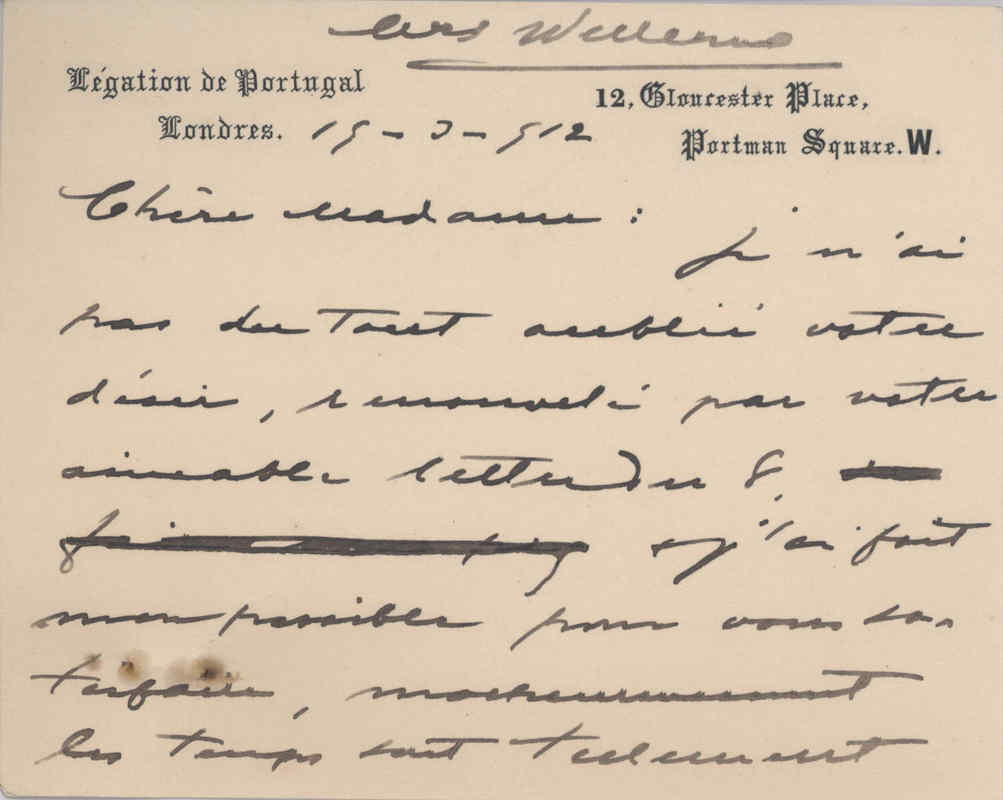 Mrs
Légation de Portugal
Londres.
12, Gloucester Place,
Portman Square. W.
19-3-912
Chère Madame :
je n'ai
pas du tout oublié votre
désir, renouvelé par votre
aimable lettre du 8,
et j'ai fait
mon possible pour vous sa-
tisfaire, malheureusement
les temps sont tellement